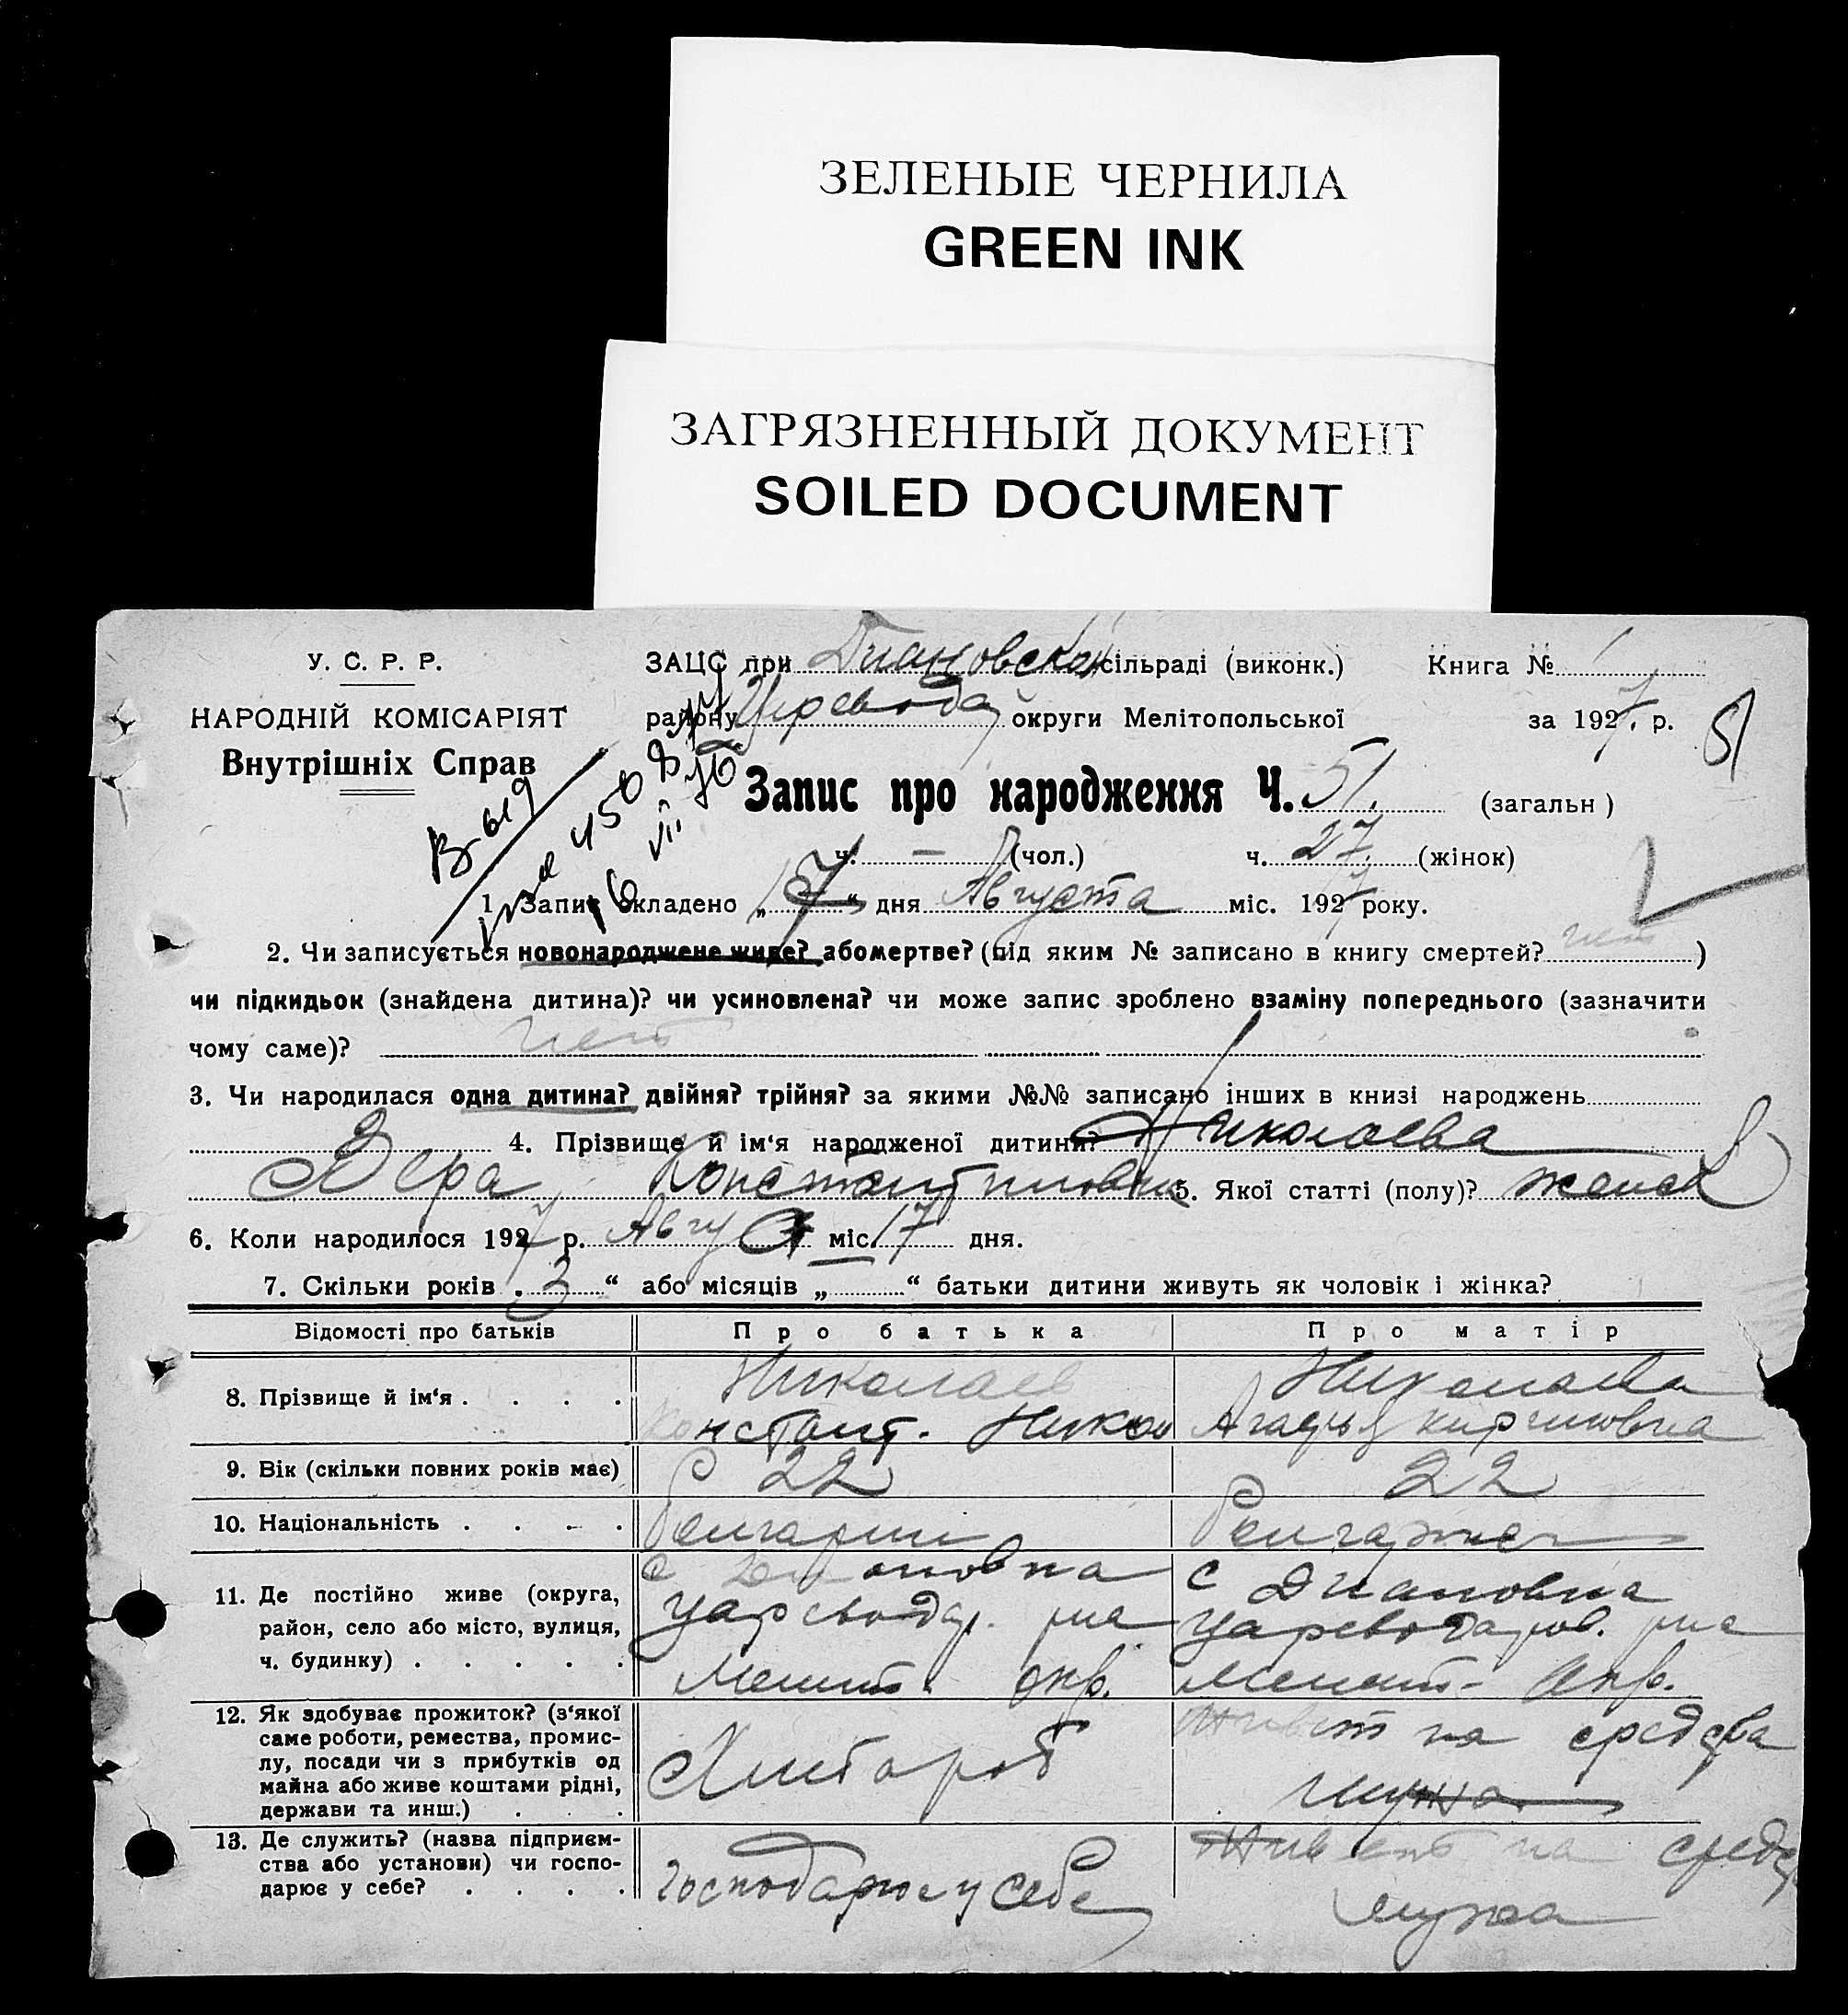 ЗЕЛЕНЫЕ ЧЕРНИЛА
GREEN INK
ЗАГРЯЗНЕННЫЙ ДОКУМЕНТ
SOILED DOCUMENT
У. С. Р. Р.
НАРОДНІЙ КОМІСАРІЯТ
Внутрішніх Справ
ЗАЦС при Диановской сільраді (виконк.) Книга № 1
району Царевода округи Мелітопольської за 1927 р.
51
Запис про народження Ч. 51. (загальн)
Выд
ч. — (чол.) ч. 27 (жінок)
1. Запис складено „17“ дня Августа міс. 1927 року.
2. Чи записується новонароджене живе? або мертве? (під яким № записано в книгу смертей? нет )
чи підкидьок (знайдена дитина)? чи усиновлена? чи може запис зроблено взаміну попереднього (зазначити
чому саме)? нет
3. Чи народилася одна дитина? двійня? трійня? за якими №№ записано інших в книзі народжень
4. Прізвище й ім‘я народженої дитини? Николаева
Вера Константиновна 5. Якої статті (полу)? женск
6. Коли народилося 1927 р. Август міс. 17 дня.
7. Скільки років „3“ або місяців „ “ батьки дитини живуть як чоловік і жінка?
Відомості про батьків Про батька Про матір
8. Прізвище й ім‘я . . . . Николаев Николаева
Констант. Никол Агафья Кириловна
9. Вік (скільки повних років має) 22 22
10. Національність . . . . болгарин болгарка
11. Де постійно живе (округа, район, село або місто, вулиця, ч. будинку) . . . . .
с Диановка
Цареводар. р-на
Мелит. окр.
с Диановка
Цареводаров. р-на
Мелит. Окр.
12. Як здобуває прожиток? (з‘якої саме роботи, ремества, промислу, посади чи з прибутків од майна або живе коштами рідні, держави та инш.) . . .
Хлебороб
Живет на средства
мужа
13. Де служить? (назва підприємства або установи) чи господарює у себе? . . . .
господарює у себе
Живет на средс
мужа